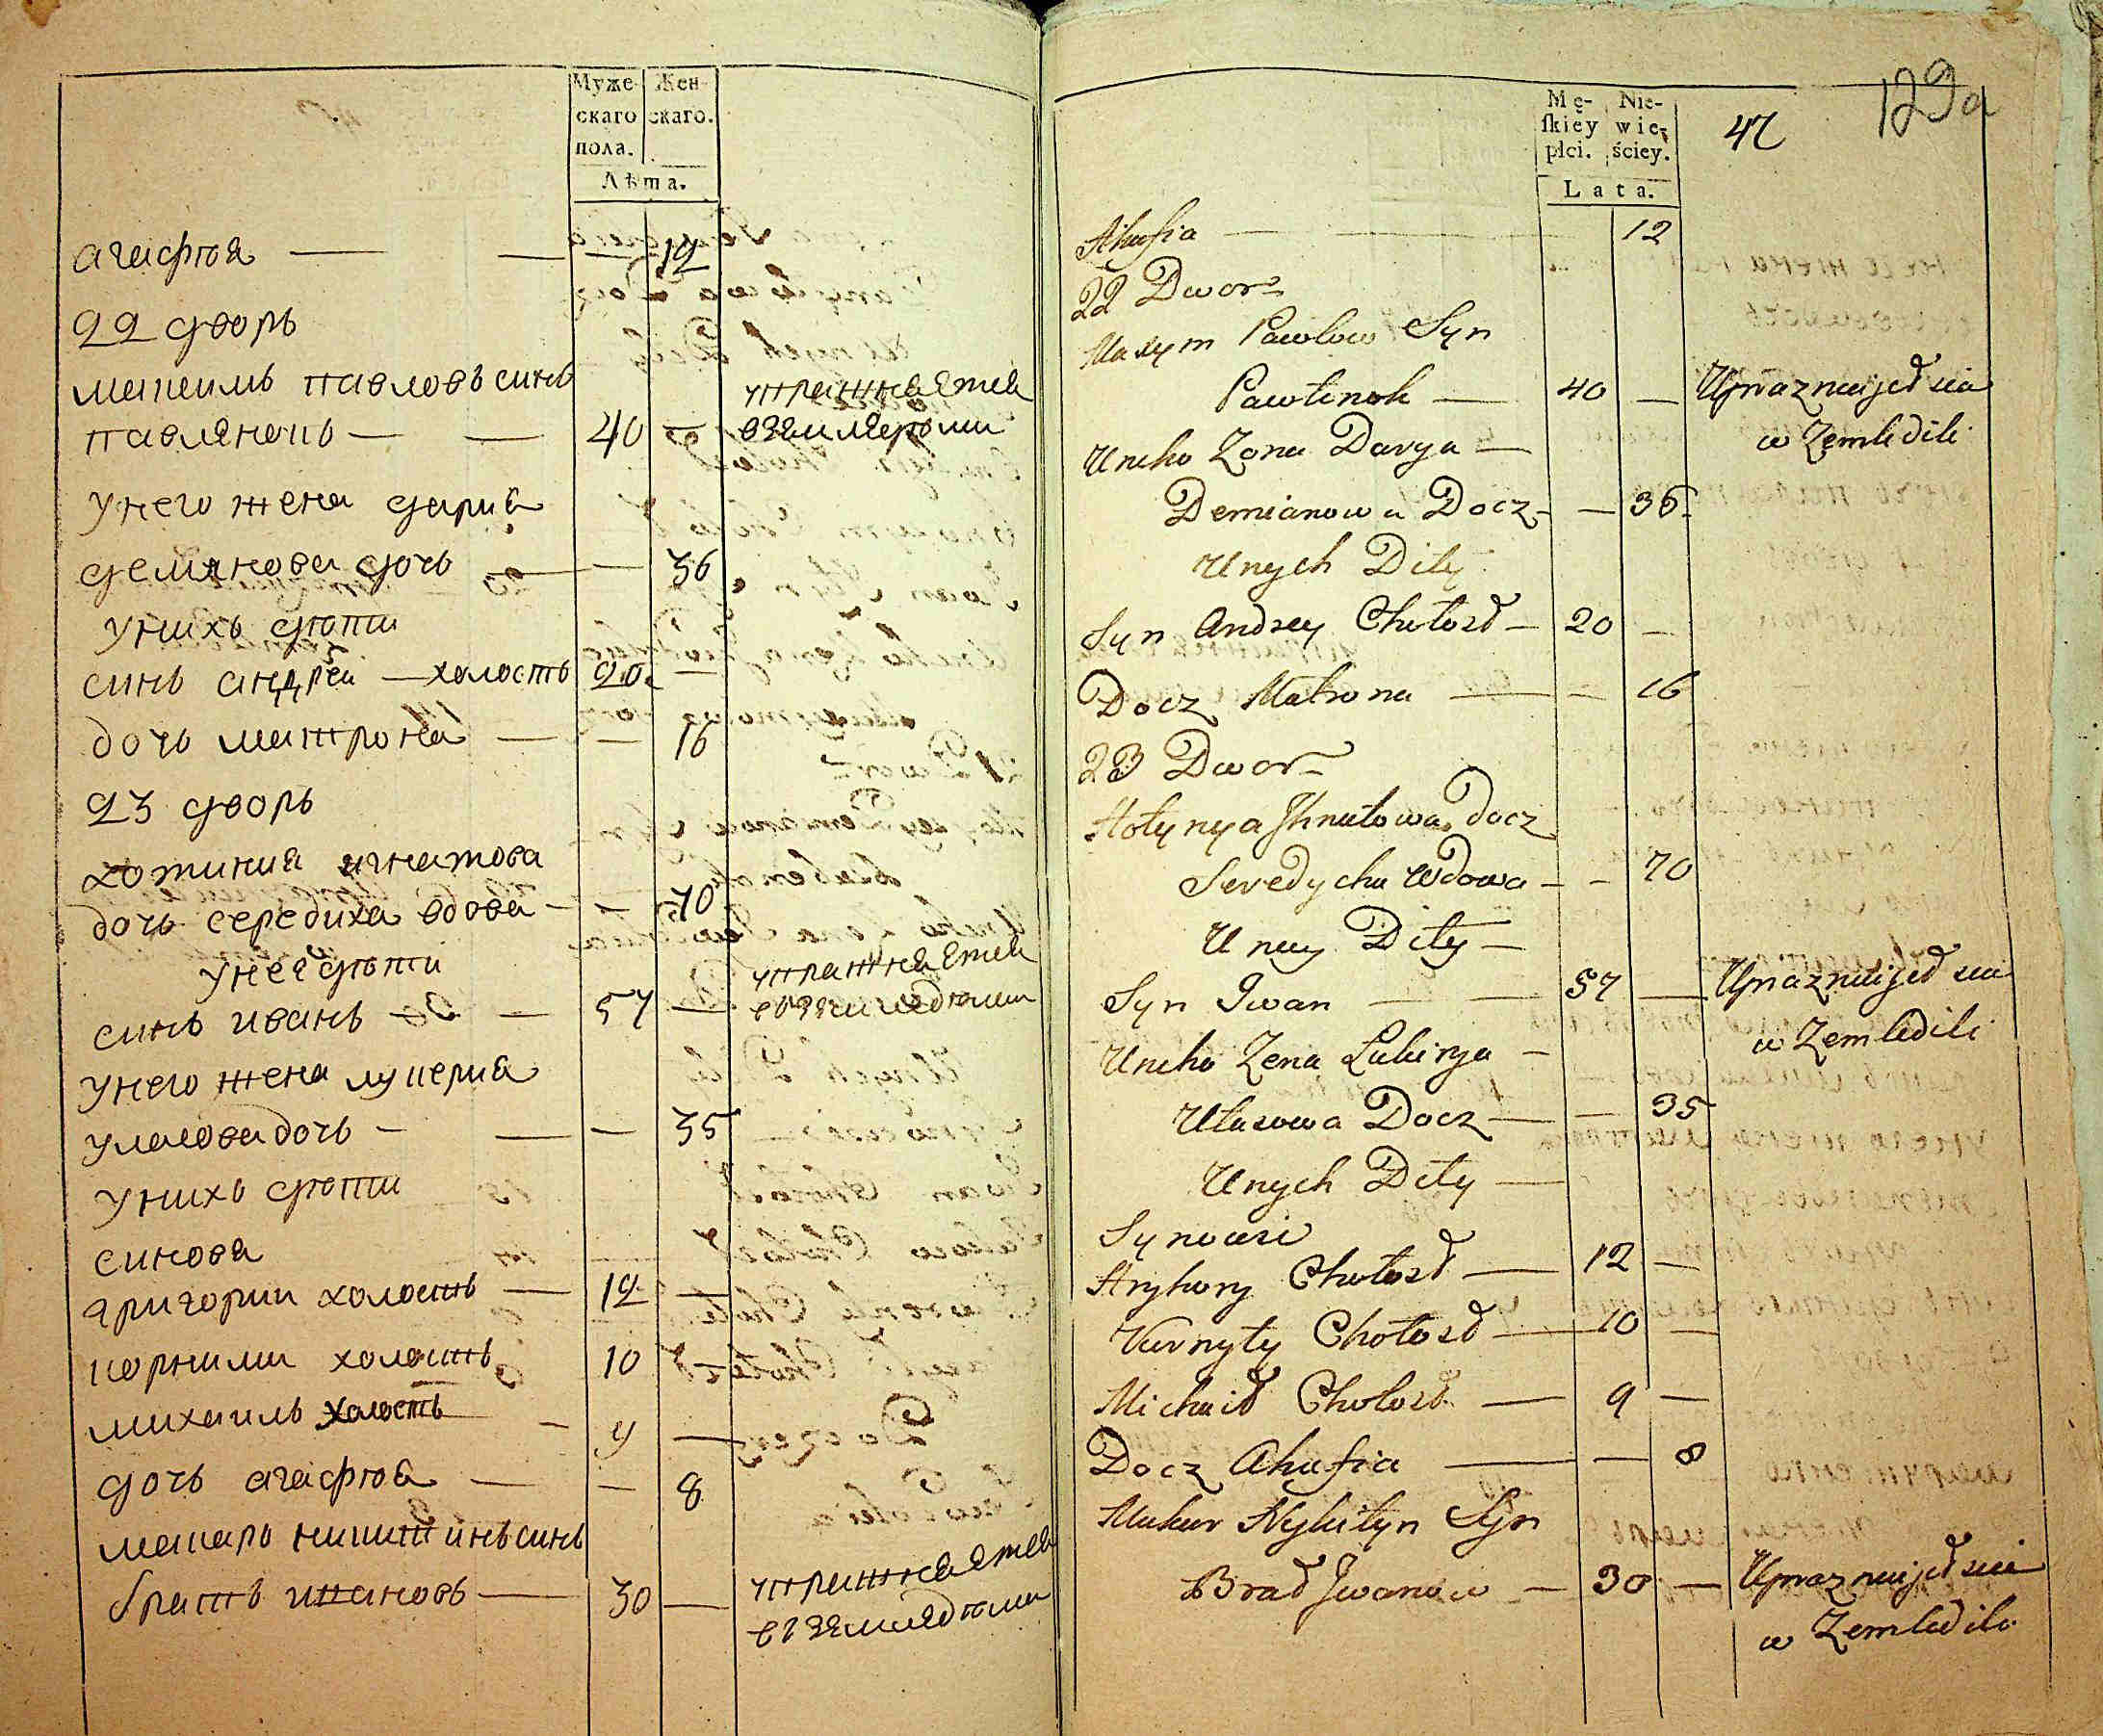 Муже-
скаго
пола.
Жен-
скаго.
Лѣта.
агафюя — — — 12
22 дворъ
максимъ павловъ синъ
павлянокъ — — 40 — упражняятся
взямлядѣлии
унего жена дария
демянова дочь — — 36
унихъ дѣти
синъ андрей — холостъ 20 —
дочь матрона — — 16
23 дворъ
хотиния игнатова
дочь середиха вдова — — 70
унея дѣти
синъ иванъ — — 57 — упражняятся
унего жена лукерия
уласова дочь — — — 35
унихъ дѣти
синова
григории холостъ — 12 —
корнили холостъ 10
михаилъ холостъ — 9 —
дочь агафюя — — 8
макаръ никитинъ синъ
братъ ивановъ — 30 — упражняятся
Mę-
ſkiey
płci.
Nie-
wie-
ściey.
Lata.
47
129a
Ahafia — — 12
22 Dwor
Maxym Pawłow Syn
Pawlinok — 40 — Uprazniajed sia
w Zemledili
Uneho Zona Darya —
Demianowa Docz — — 36
Unych Dity
Syn Andrey Chołosd — 20 —
Docz Matrona — — 16
23 Dwor
Hotynya Ihnatowa Docz
Seredycha Wdowa — — 70
U ney Dity —
Syn Iwan — — 57 — Uprazniajed sia
w Zemledili
Uneho Zena Lukirya —
Ułasowa Docz — — 35
Unych Dity —
Synowi
Hryhory Chołosd — 12 —
Kurnyły Chołosd — 10 —
Michaił Chołosd — 9 —
Docz Ahafia — — 8
Makar Nykityn Syn
Brad Iwanow — 30 — Uprazniajed sia
w Zemledili